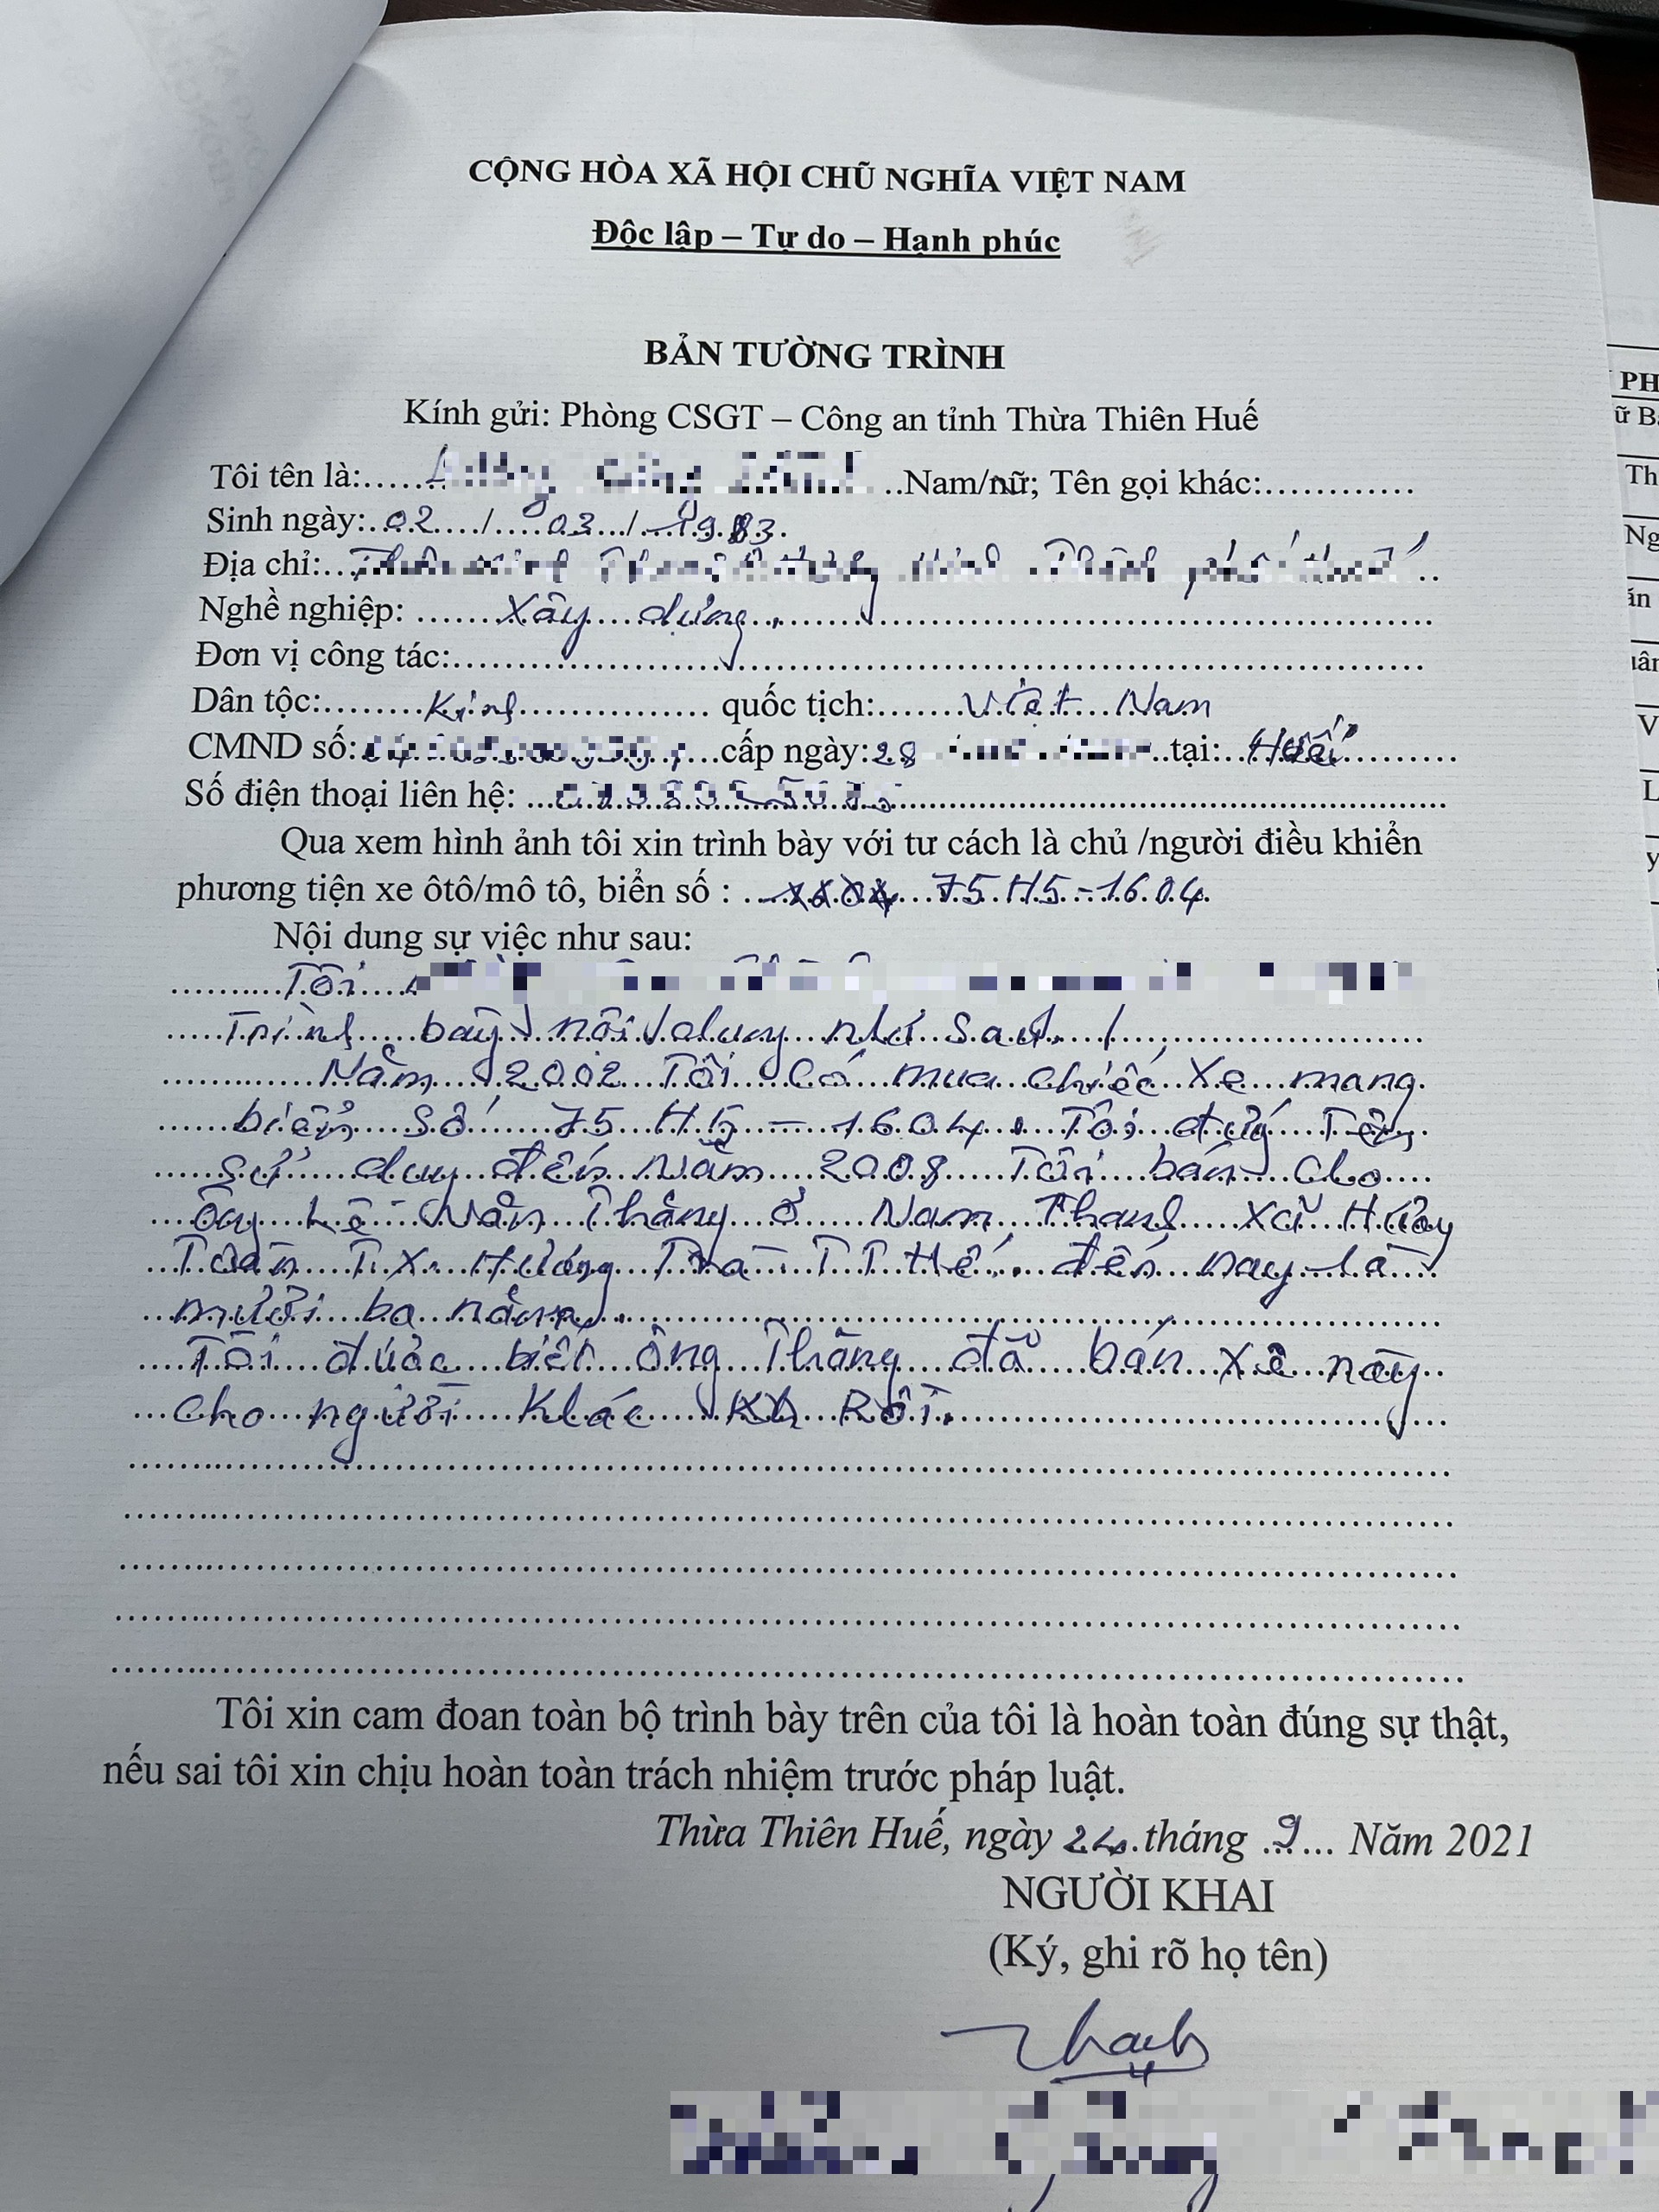 CỘNG HÒA XÃ HỘI CHŨ NGHĨA VIỆT NAM
Độc lập – Tự do – Hạnh phúc
BẢN TƯỜNG TRÌNH
Kính gửi: Phòng CSGT – Công an tỉnh Thừa Thiên Huế
Tôi tên là:.......Nam/nữ; Tên gọi khác:............
Sinh ngày:..02..../....03.../..1983.
Địa chỉ:...
Nghề nghiệp: ......Xây....dựng..
Đơn vị công tác:..........
Dân tộc:........Kinh.......... quốc tịch:.......Việt...Nam
CMND số:....cấp ngày:28 ..tại:..Huế..........
Số điện thoại liên hệ: ...
Qua xem hình ảnh tôi xin trình bày với tư cách là chủ /người điều khiển
phương tiện xe ôtô/mô tô, biển số : ....75.H5.-1.6.0.4.
Nội dung sự việc như sau:
..........Tôi....
.....Trình....baỳ nôi dung như sau
..........Năm 2002 Tôi Có mua chiếc Xe mang
......biển Số 75 H5 – 1604. Tôi đứng Tên
.....Sử dụng đến Năm 2008 Tôi bán cho
...Ông Lê Văn Thắng ở Nam Thanh xã Hương
...Toàn T.X. Hương Trà T T Huế. đến nay là
...mười ba năm
....Tôi được biết ông Thắng đã bán xe này
...cho người Khác Rồi.
Tôi xin cam đoan toàn bộ trình bày trên của tôi là hoàn toàn đúng sự thật,
nếu sai tôi xin chịu hoàn toàn trách nhiệm trước pháp luật.
Thừa Thiên Huế, ngày 24.tháng ..9... Năm 2021
NGƯỜI KHAI
(Ký, ghi rõ họ tên)